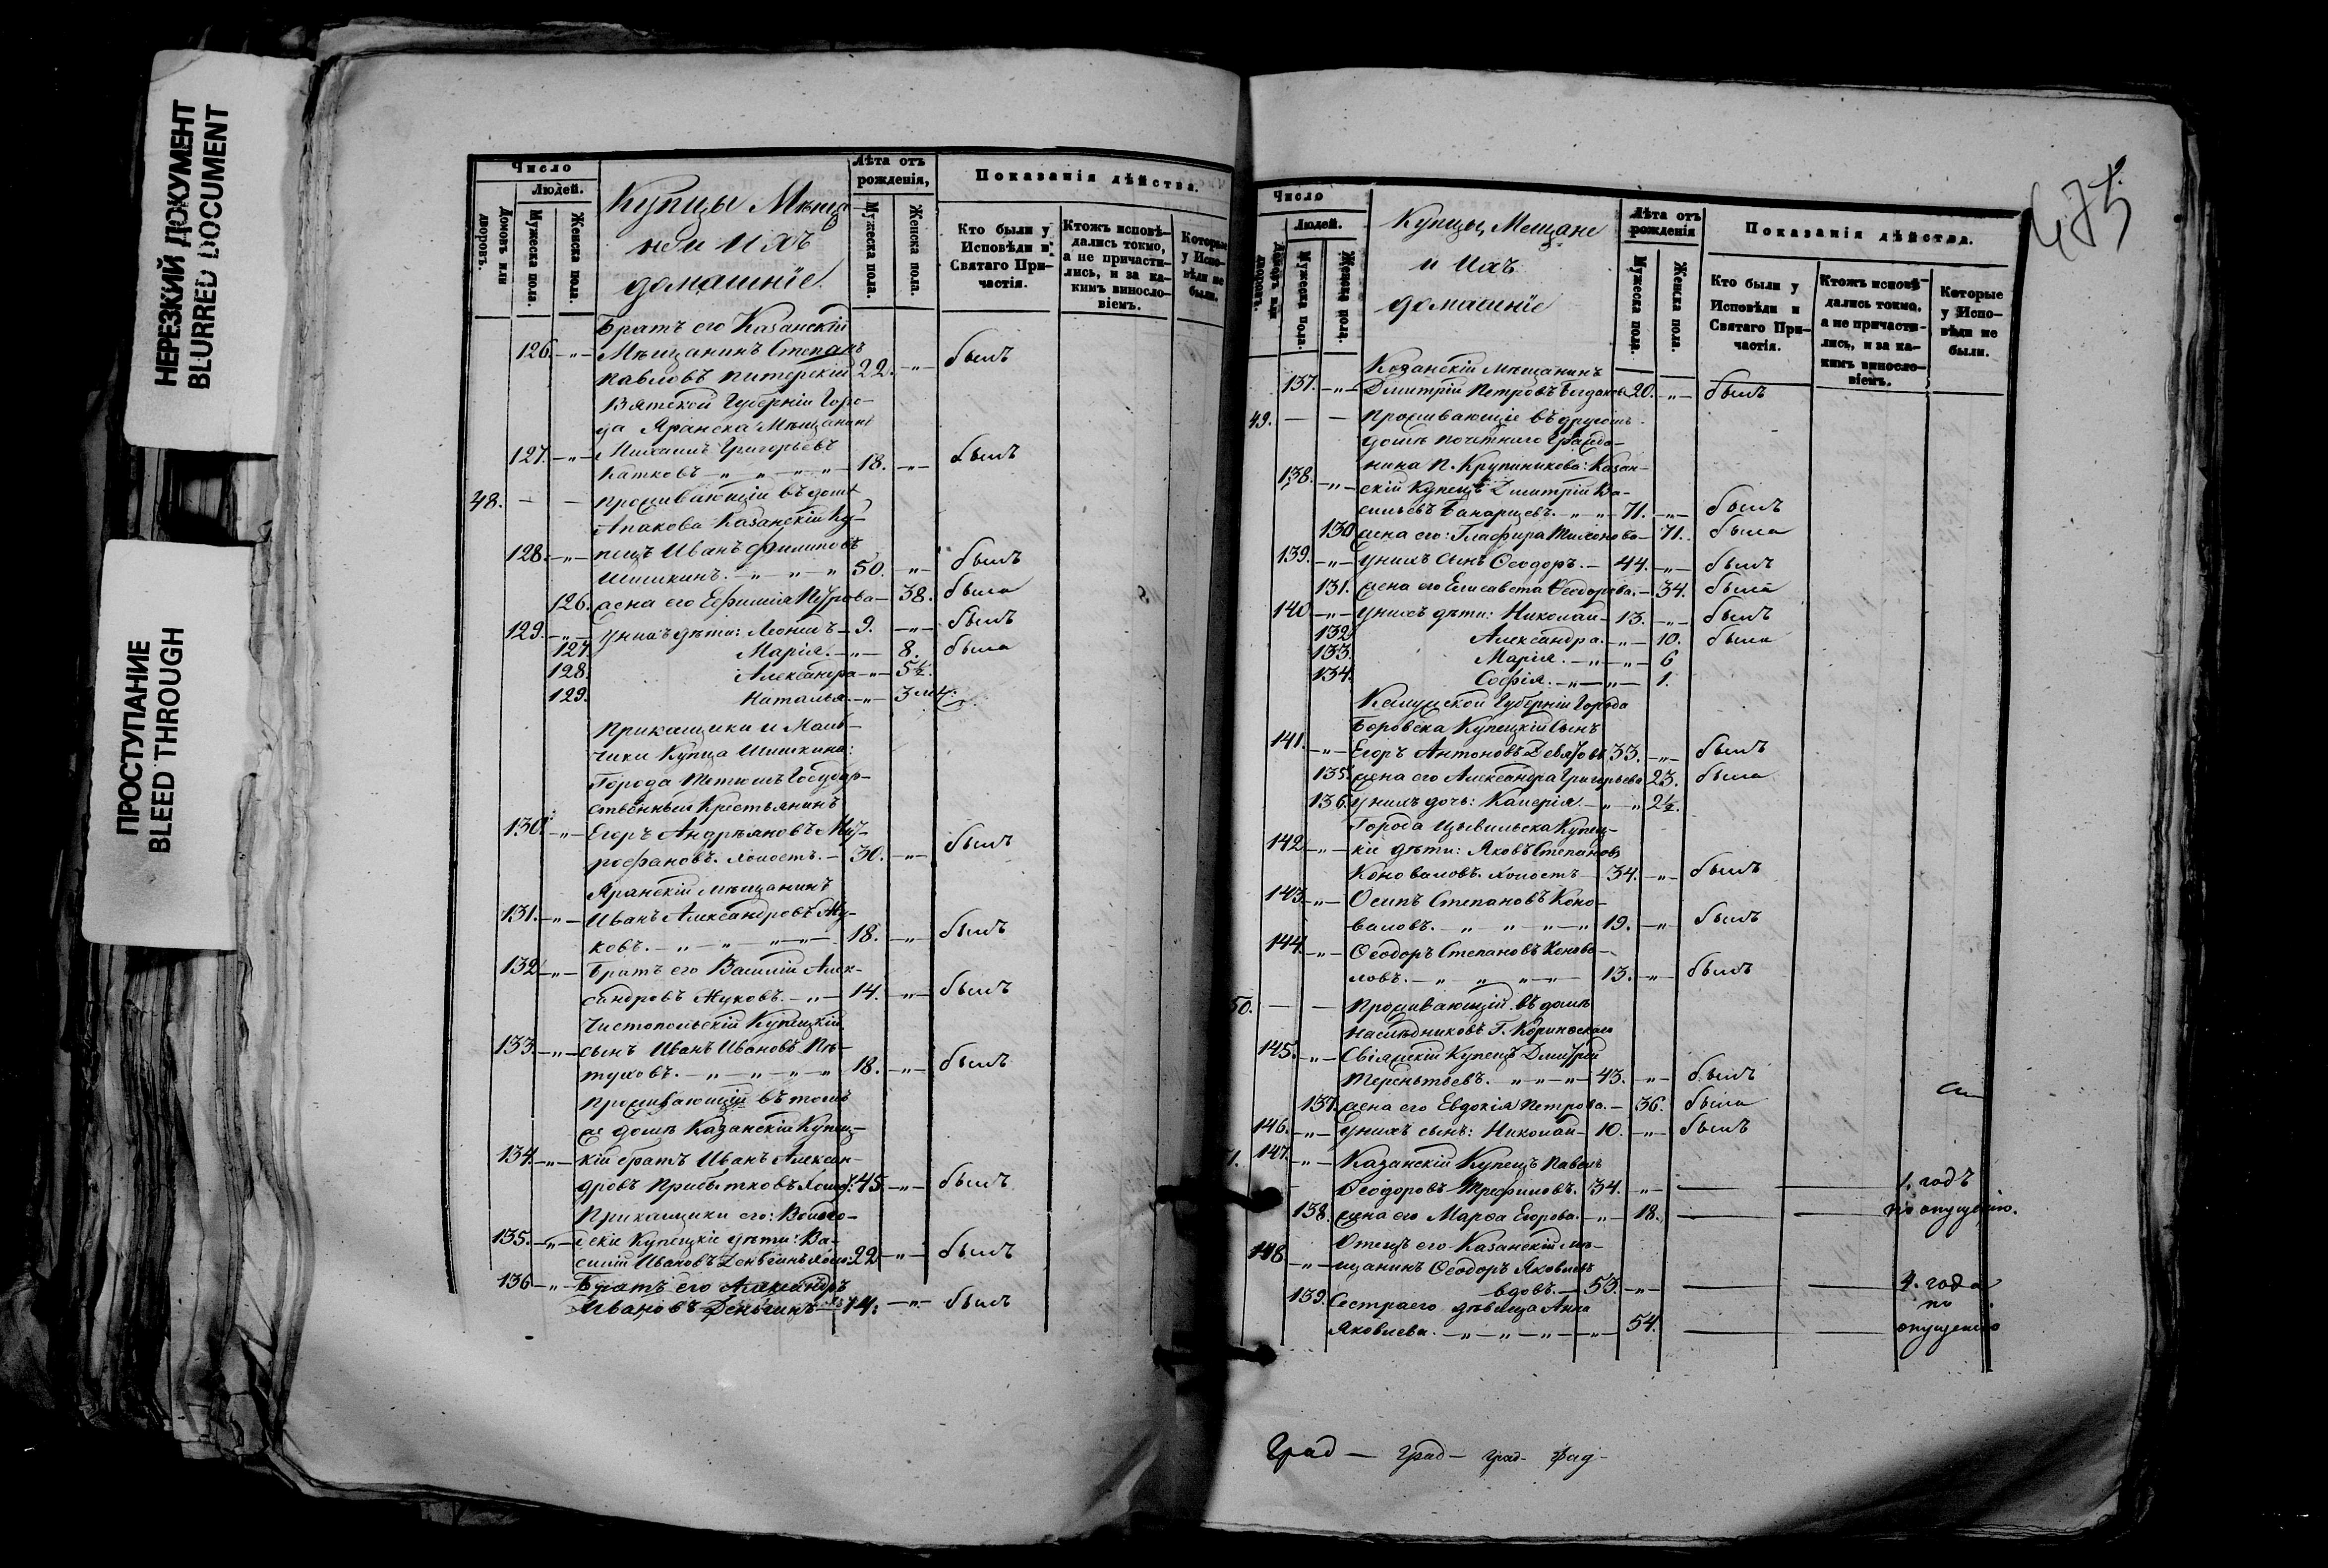 НЕРЕЗКИЙ ДОКУМЕНТ
BLURRED DOCUMENT
ПРОСТУПАНИЕ
BLEED THROUGH
Число
Людей.
Домовъ или дворовъ.
Мужеска пола.
Женска пола.
Купцы Мѣща
не и Ихъ
домашнїе.
Лѣта отъ рожденія,
Мужеска пола.
Женска пола.
Показанія дѣйства.
Кто были у Исповѣди и Святаго При-
частія.
Ктожъ исповѣ-
дались токмо,
а не причасти-
лись, и за ка-
кимъ виносло-
віемъ.
Которые
у Испо-
вѣди не
были.
Братъ его Казанскій
126. -"- Мѣщанинъ Степанъ
Павловъ Питерскій 22. -"- былъ
Вятской Губерніи Горо-
да Яранска Мѣщанинъ
127. -"- Михаилъ Григорьевъ
Катковъ -"-"-"- 18. -"- былъ
48. - - Проживающій въ домѣ
Апакова Казанскій Ку-
128. -"- пецъ Иванъ Филиповъ
Шишкинъ. -"-"-" 50. -"- былъ
126. жена его Евфимія Петрова - 38. была
129. -"- у нихъ дѣти: Леонидъ - 9. -"- былъ
127. Марія. -"- 8. была
128. Александра -"- 5½.
129. Наталья. -"- 3 мц.
Прикащики и Маль-
чики Купца Шишкина:
Города Тетюшъ Государ-
ственный Крестьянинъ
130. -"- Егоръ Андреяновъ Ми-
трофановъ. холостъ. - 30. -"- былъ
Яранскій мѣщанинъ
131. -"- Иванъ Александровъ Жу-
ковъ. -"-"-"- 18. -"- былъ
132. -"- Братъ его Василій Алек-
сандровъ Жуковъ. -"- 14. -"- былъ
Чистопольскій Купецкій
133. -"- сынъ Иванъ Ивановъ Пѣ-
туховъ. -"-"-"-" 18. -"- былъ
Проживающій въ томъ
же домѣ Казанскій Купец-
134. -"- кій братъ Иванъ Алексан-
дровъ Прибытковъ Холос: 45. -"- былъ
Прикащики его:
135. -"- скіе Купецкіе дѣти: Ва-
силій Ивановъ Деньгинъ холос: 22 -"- былъ
136 -"- Братъ его Александръ
Ивановъ Деньгинъ - 14. -"- былъ
475.
Число
Людей.
Домовъ или дворовъ.
Мужеска пола.
Женска пола.
Купцы, Мещане
и Ихъ
домашнїе
Лѣта отъ рожденія
Мужеска пола.
Женска пола.
Показанія дѣйства.
Кто были у
Исповѣди и
Святаго При-
частія.
Ктожъ исповѣ-
дались токмо,
а не причасти-
лись, и за ка-
кимъ виносло-
віемъ.
Которые
у Испо-
вѣди не
были.
Козанскій мѣщанинъ
137. -"- Дмитрій Петровъ 20. -"- былъ
49. - - Проживающіе въ другомъ
домѣ почетнаго Гражда-
нина П. Крупиникова: Казан-
138. -"- скій Купецъ Дмитрій Ва-
сильевъ Банарцевъ. -"-" 71. -"- былъ
130 жена его: Глафира Тихонова - 71. была
139. -"- у нихъ Сынъ Ѳеодоръ. - 44. -"- былъ
131. жена его Елисавета Ѳеодорова. - 34. была
140 -"- у нихъ дѣти: Николай - 13. -"- былъ
132. Александра. -"- 10. была
133. Марія. -"-"- 6
134. Софія. -"-"- 1.
Калужской Губерніи Города
Боровска Купецкій Сынъ
141. -"- Егоръ Антоновъ Девятовъ 33. -"- былъ
135. жена его Александра Григорьева 23. была
136. у нихъ дочь: Калерія. -"-" 2½.
Города Цывильска Купец-
142 -"- кіе дѣти: Яковъ Степановъ
Коноваловъ. холостъ - 34. -"- былъ
143. -"- Осипъ Степановъ Коно-
валовъ. -"-"-"-" 19. -"- былъ
144. -"- Ѳеодоръ Степановъ Конова-
ловъ. -"-"-"-"- 13. -"- былъ
50. - - Проживающій въ домѣ
Наслѣдниковъ Г. Коринѳскаго
145. -"- Свіяжскій Купецъ Дмитрій
Терентьевъ. -"-"-" 43. -"- былъ
137. жена его Евдокія Петрова. - 36. была
146. -"- у нихъ сынъ: Николай - 10. -"- былъ
147. -"- Казанскій Купецъ Павелъ
Ѳеодоровъ Трефиловъ. 34. -"- 1. годъ
138. жена его Марѳа Егорова. -"- 18. по опущенію.
Отецъ его Казанскій мѣ-
148 -"- щанинъ Ѳеодоръ Яковлевъ
вдовъ. - 53. -"- 4. года
139. Сестра его дѣвица Анна по
Яковлева. -"-"-"-"- 54. опущенію
Град - Град - град -